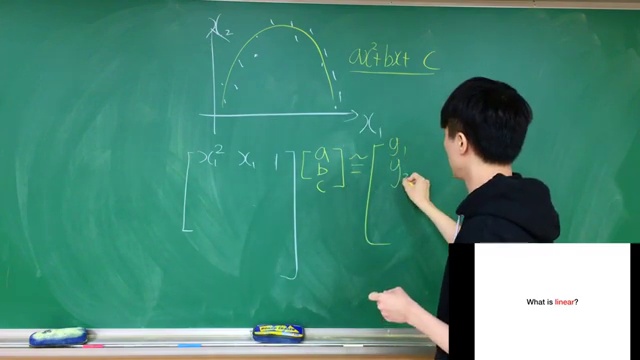 x₂
ax²+bx+ c
x₁
[x₁² x₁ 1] [a b c] ≅ [y₁ y₂
What is linear?